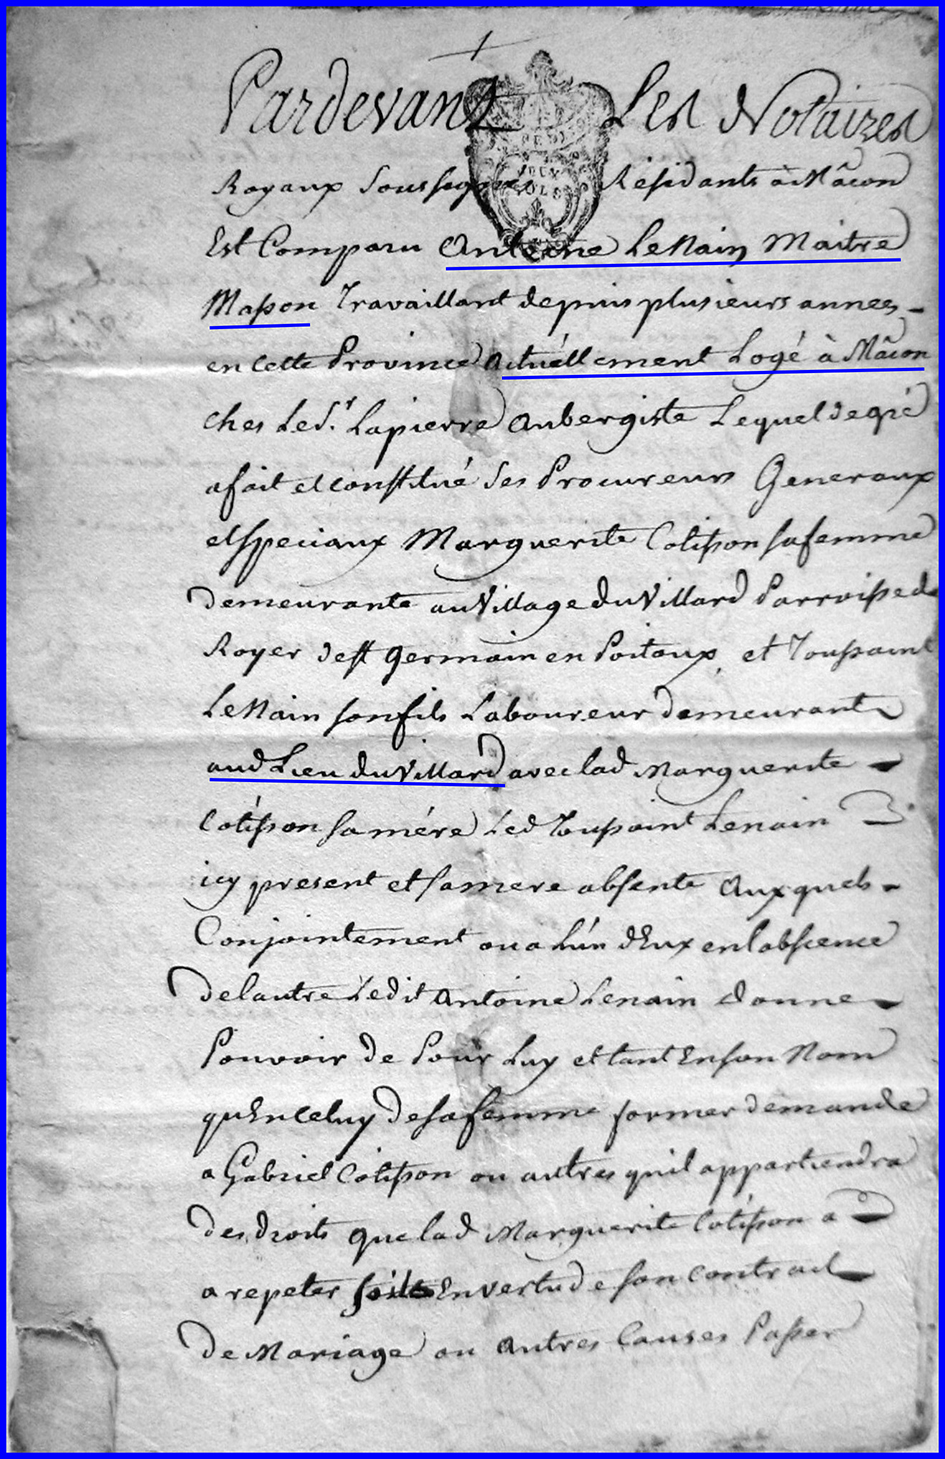 Pardevant Les Notaires
Royaux Soussignés Residants à Mâcon
Est Comparu Antoine LeNain Maitre
Masson Travaillant depuis plusieurs annees
en cette Province actuéllement Logé à Mâcon
ches Le Sr. Lapierre Aubergiste Lequel de gré
a fait et constitué Ses Procureurs Generaux
et speciaux Marguerite Cotisson sa femme
demeurante au Village du Villard Parroisse de
Royer de St Germain en Poitoux et Toussaint
LeNain son fils Laboureur demeurant
aud Lieu du Villard avec lad Marguerite
Cotisson sa mére Led Toussaint Lenain
icy present et sa mere absente Auxquels
Conjointement ou a L'un d'Eux en l'abscence
de lautre Ledit Antoine Lenain donne
Pouvoir de Pour Luy et tant En son Nom
qu'En Celuy de sa femme former demande
a Gabriel Cotisson ou autres quil appartiendra
des droits que lad Marguerite Cotisson a
a repeter soit En vertu de son contract
de Mariage ou Autres Causes Passer